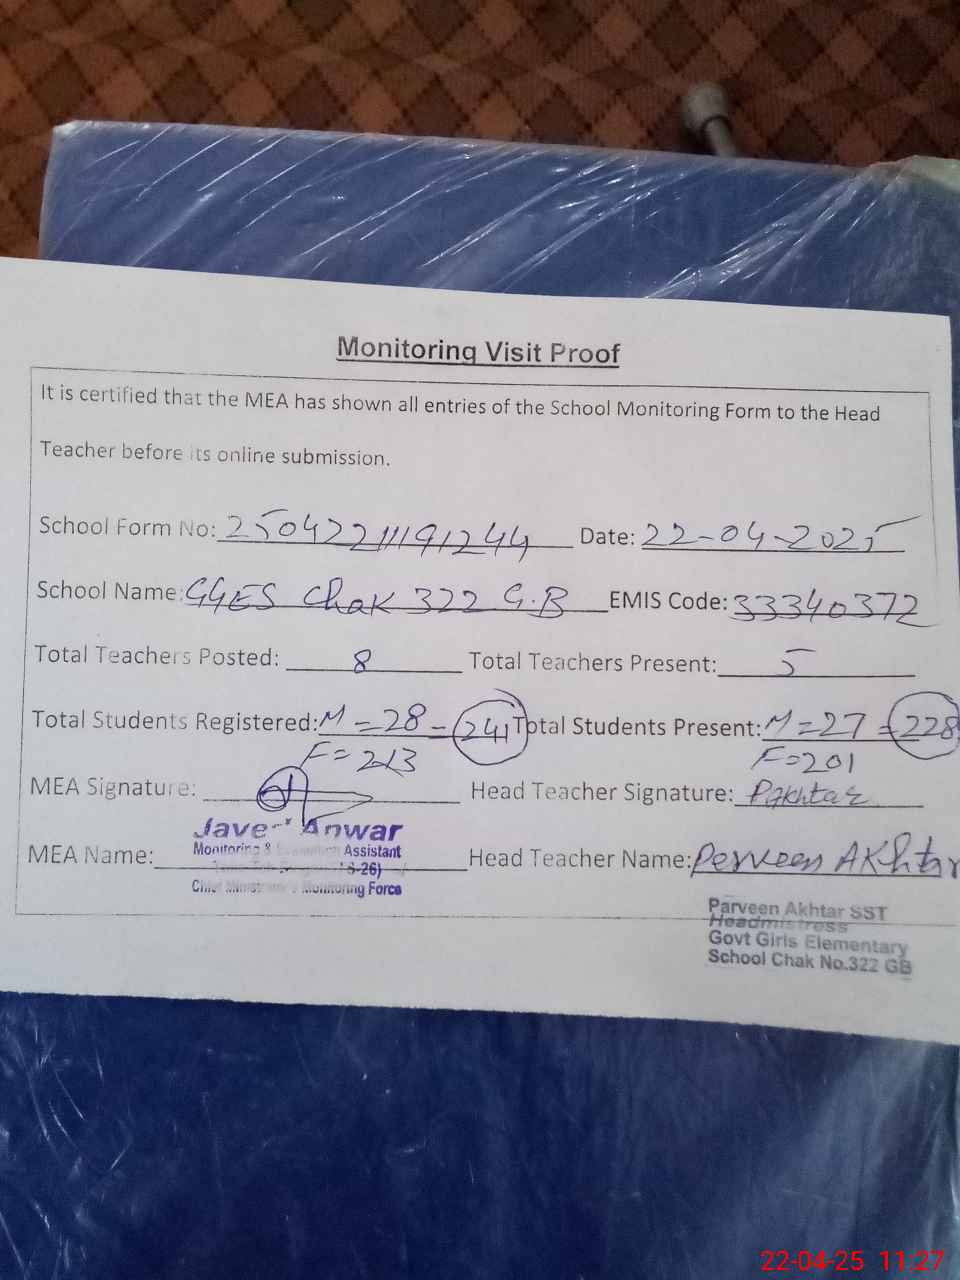 Monitoring Visit Proof
It is certified that the MEA has shown all entries of the School Monitoring Form to the Head
Teacher before its online submission.
School Form No: 25042211191244 Date: 22-04-2025
School Name: GGES Chak 322 G.B EMIS Code: 33340372
Total Teachers Posted: 8 Total Teachers Present: 5
Total Students Registered: M=28 - 241 Total Students Present: M=27 = 228
F=213 F=201
MEA Signature: Head Teacher Signature: PAkhtar
Anwar
Monitoring & Evaluation Assistant
MEA Name: Head Teacher Name: Perveen AKhtar
S-26)
Monitoring Force
Parveen Akhtar SST
Headmistress
Govt Girls Elementary
School Chak No.322 GB
22-04-25 11:27